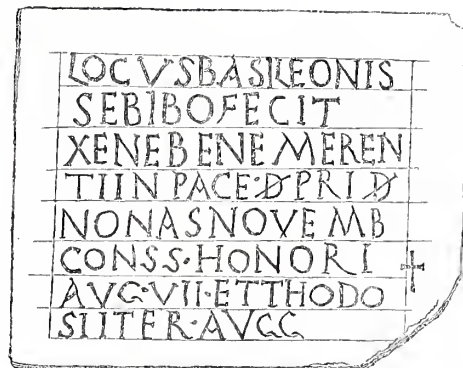 LOCVSBASILEONIS
SEBIBOFECIT
XENEBENEMEREN
TIINPACE·D PRI D
NONASNOVEMB
CONSS·HONORI
AVG·VII·ETTHODO
SIITER·AVGG